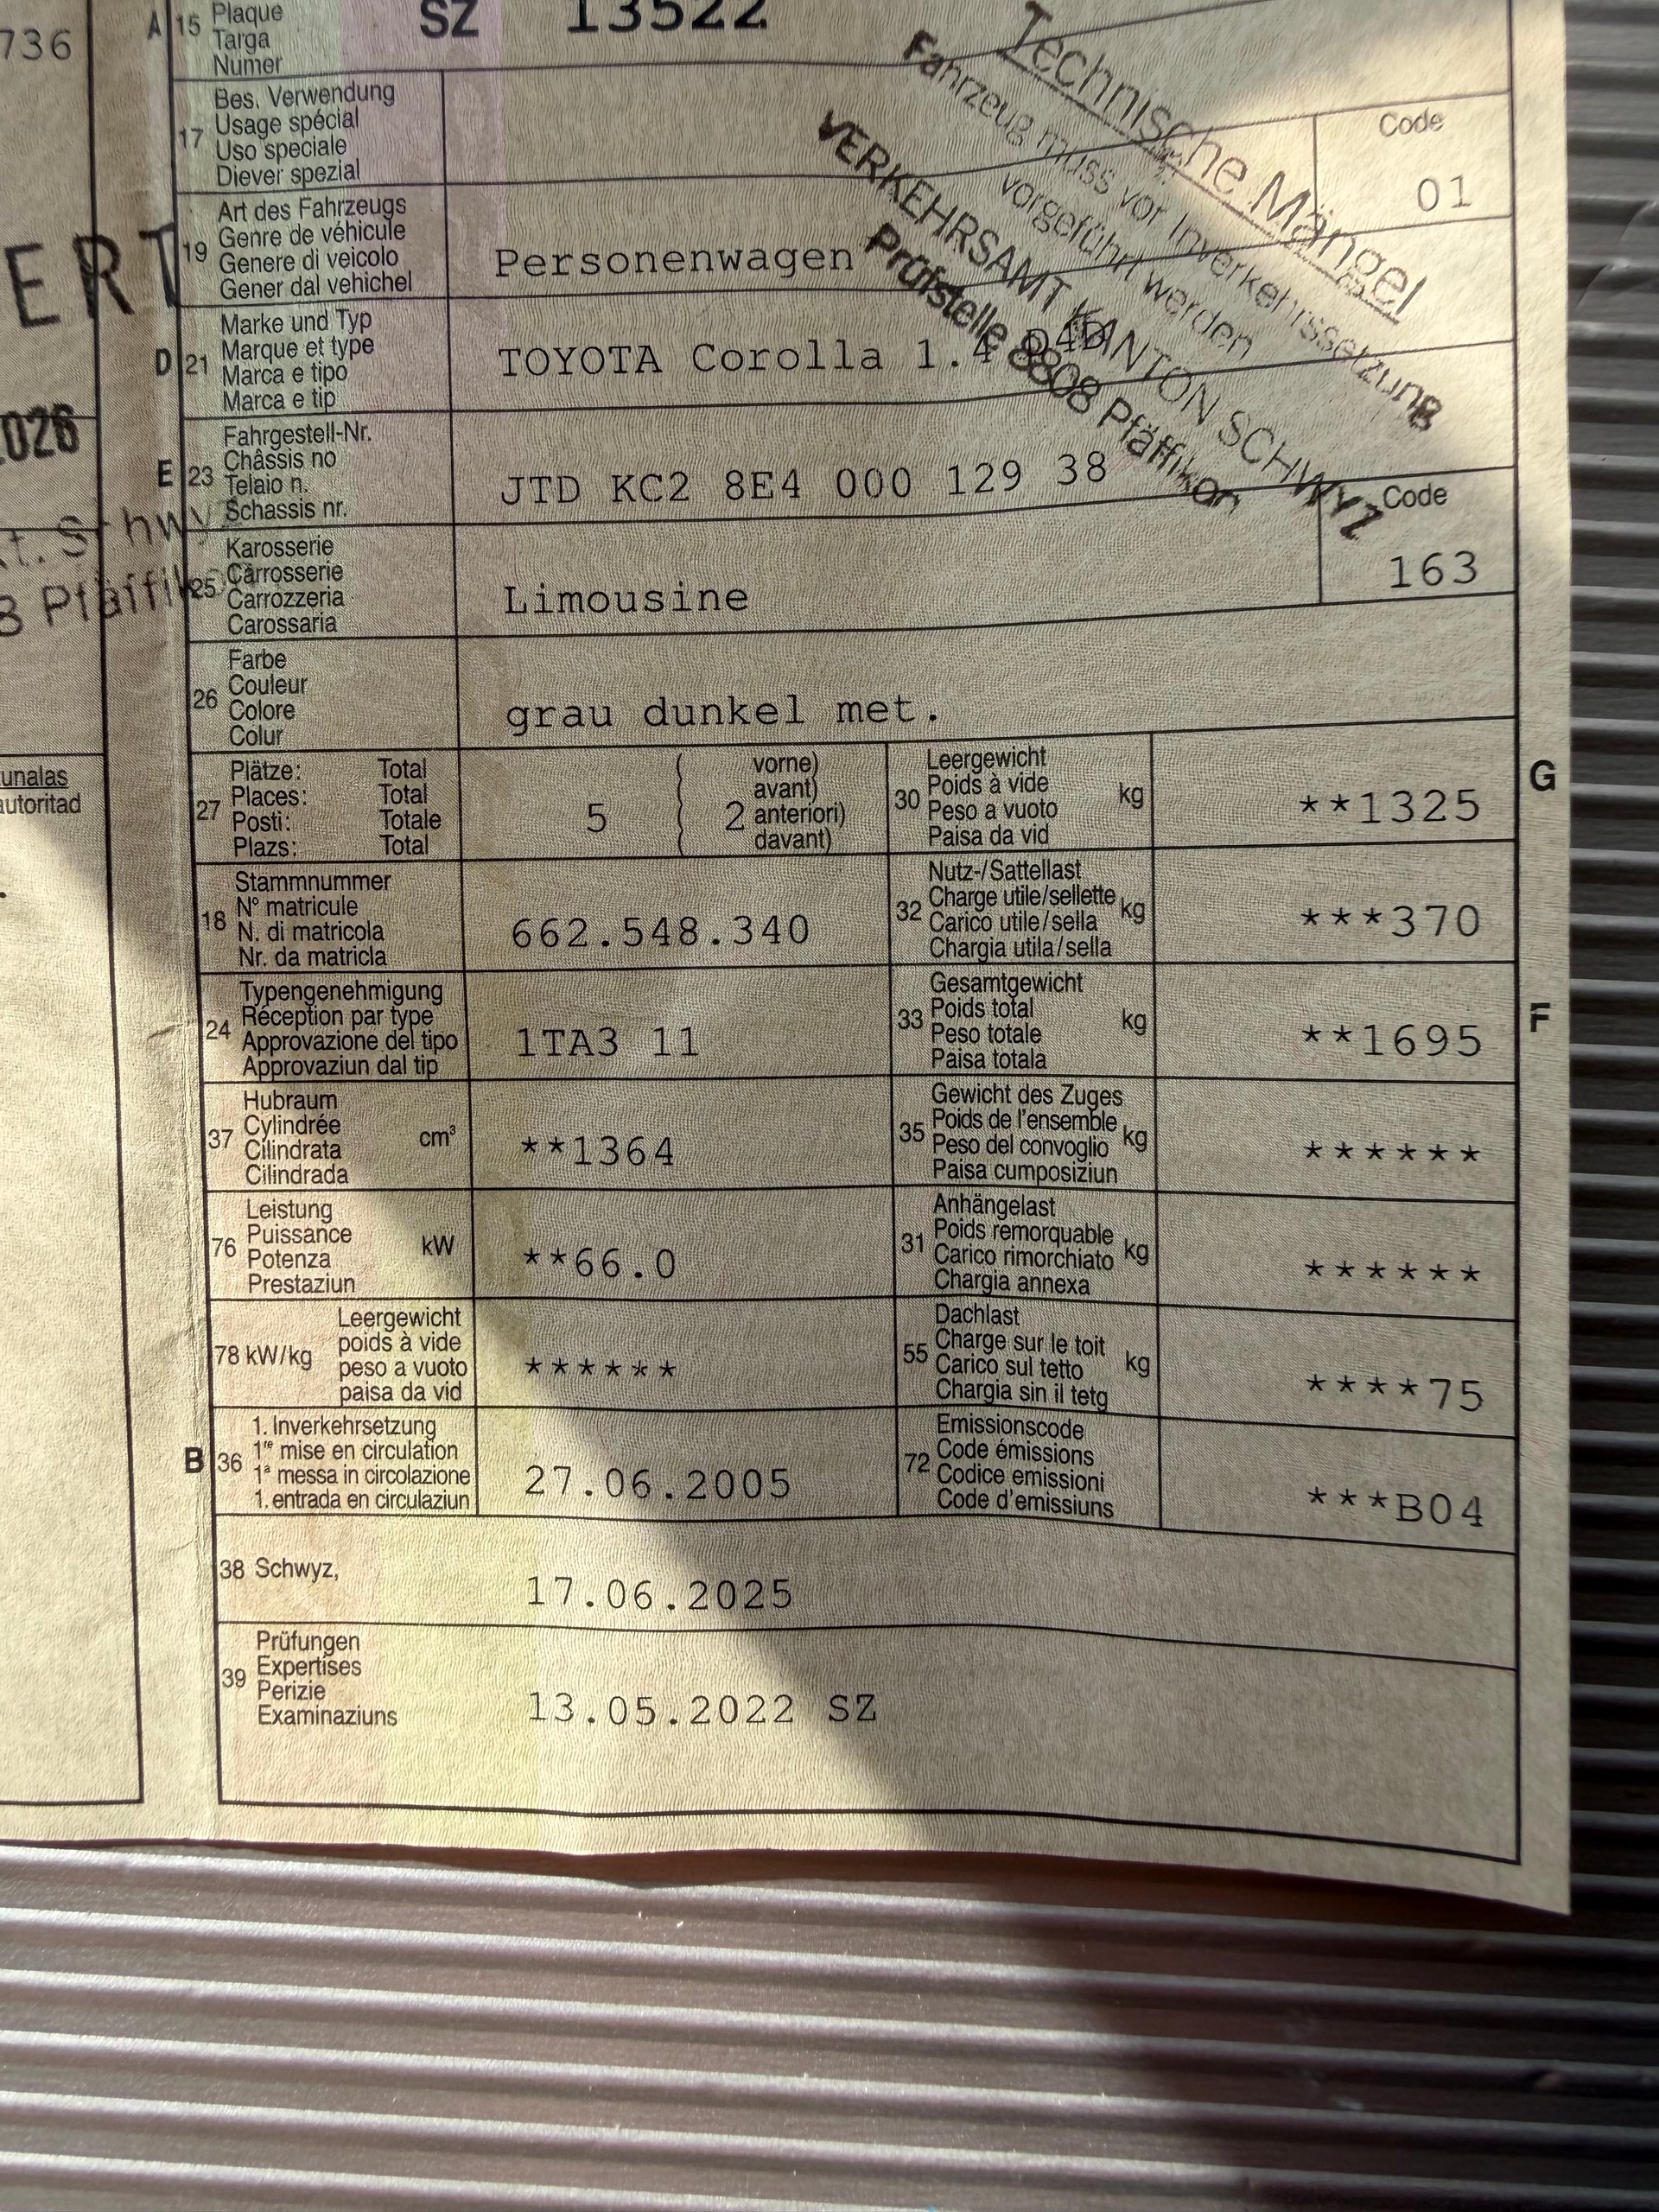 736
A 15 Plaque
Targa
Numer
SZ 13522
Technische Mängel
Fahrzeug muss vor Inverkehrssetzung
vorgeführt werden
VERKEHRSAMT KANTON SCHWYZ
Prüfstelle 8808 Pfäffikon
17 Bes. Verwendung
Usage spécial
Uso speciale
Diever spezial
Code
01
ERT
19 Art des Fahrzeugs
Genre de véhicule
Genere di veicolo
Gener dal vehichel
Personenwagen
D 21 Marke und Typ
Marque et type
Marca e tipo
Marca e tip
TOYOTA Corolla 1.4 D4D
026
E 23 Fahrgestell-Nr.
Châssis no
Telaio n.
Schassis nr.
JTD KC2 8E4 000 129 38
Kt. Schwyz
8 Pfäffikon
25 Karosserie
Carrosserie
Carrozzeria
Carossaria
Limousine
Code
163
26 Farbe
Couleur
Colore
Colur
grau dunkel met.
unalas
autoritad
27 Plätze: Total
Places: Total
Posti: Totale
Plazs: Total
5 ( 2 vorne)
avant)
anteriori)
davant)
30 Leergewicht
Poids à vide
Peso a vuoto
Paisa da vid
kg
**1325
G
18 Stammnummer
N° matricule
N. di matricola
Nr. da matricla
662.548.340
32 Nutz-/Sattellast
Charge utile/sellette
Carico utile/sella
Chargia utila/sella
kg
***370
24 Typengenehmigung
Réception par type
Approvazione del tipo
Approvaziun dal tip
1TA3 11
33 Gesamtgewicht
Poids total
Peso totale
Paisa totala
kg
**1695
F
37 Hubraum
Cylindrée
Cilindrata
Cilindrada
cm³
**1364
35 Gewicht des Zuges
Poids de l'ensemble
Peso del convoglio
Paisa cumposiziun
kg
******
76 Leistung
Puissance
Potenza
Prestaziun
kW
**66.0
31 Anhängelast
Poids remorquable
Carico rimorchiato
Chargia annexa
kg
******
78 kW/kg
Leergewicht
poids à vide
peso a vuoto
paisa da vid
******
55 Dachlast
Charge sur le toit
Carico sul tetto
Chargia sin il tetg
kg
****75
B 36 1. Inverkehrsetzung
1re mise en circulation
1a messa in circolazione
1. entrada en circulaziun
27.06.2005
72 Emissionscode
Code émissions
Codice emissioni
Code d'emissiuns
***B04
38 Schwyz,
17.06.2025
39 Prüfungen
Expertises
Perizie
Examinaziuns
13.05.2022 SZ